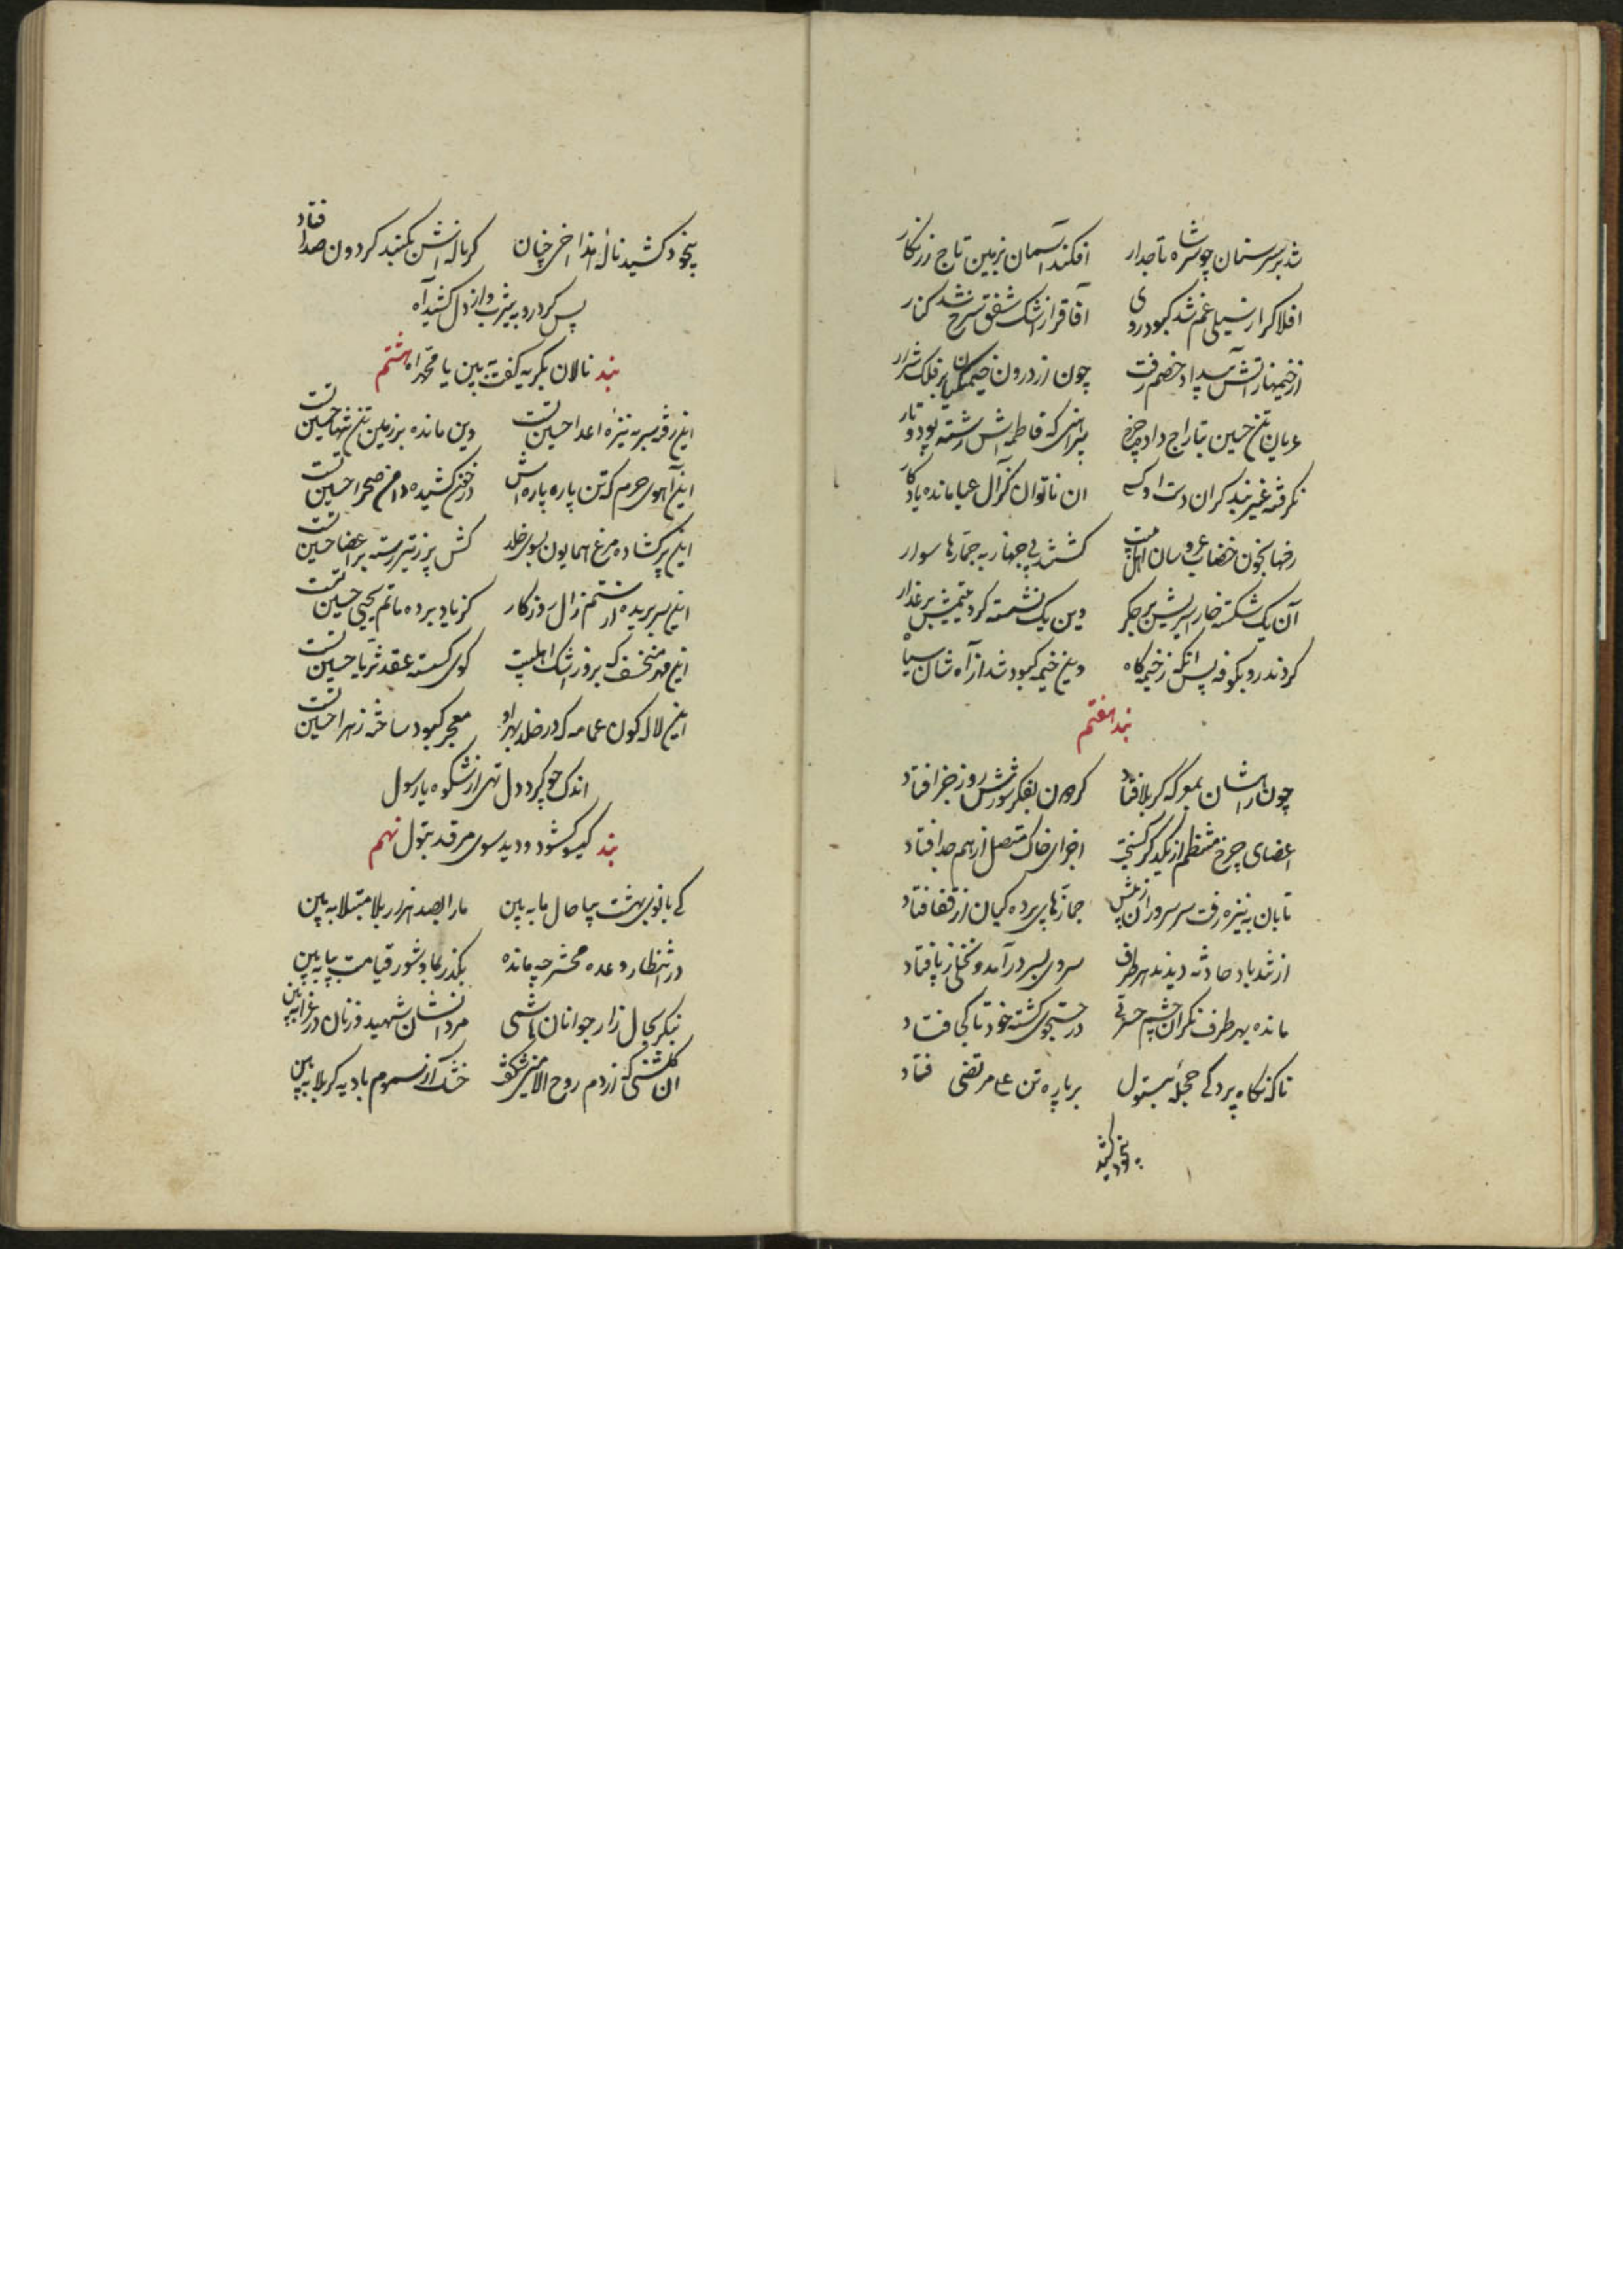 شد بر سر سنان چو سر شاه تاجدار افکند آسمان بزمین تاج زرنگار
افلاک را ز سیلی غم شد کبود روی آفاق را ز اشک شفق سرخ شد کنار
از خیمها ز آتش بیداد خصم رفت چون از درون خیمگیان بر فلک شرار
عریان تن حسین بتاراج داد چرخ پیراهنی که فاطمه اش رشته پود و تار
نگرفته غیر بند گران دست او کسی ان ناتوان کز آل عبا مانده یادگار
رخها بخون خضاب عروسان اهل بیت گشتند بی جهاز به جمازها سوار
آن یک شکسته خار اسیریش بر جگر وین یک نشسته گرد یتیمیش بر عذار
کردند رو بکوفه پس انگه ز خیمه گاه وین خیمه کبود شد از آه شان سیاه
بند هفتم
چون راه شان بمعرکه کربلا فتاد گردون بفکر شورش روز جزا فتاد
اعضای چرخ منتظم از یکدگر گسیخت اجزای خاک متصل از هم جدا فتاد
تابان به نیزه رفت سر سروران ز پیش جمازهای پرده گیان از قفا فتاد
از تند باد حادثه دیدند هر طرف سروی بسر درآمد و نخلی ز پا فتاد
مانده بهر طرف نگران چشم حسرتی در جستجوی کشته خود تا کجا فتاد
ناگه نگاه پردگی حجله بتول بر پاره تن علی مرتضی فتاد
بیخود کشید
بیخود کشید ناله هذا اخی چنان کز ناله اش بگنبد گردون صدا فتاد
پس کرد رو به یثرب و از دل کشید آه
بند نالان بگریه گفت ببین یا محمداه هشتم
این رفته سر به نیزه اعدا حسین تست وین مانده بر زمین تن تنها حسین تست
این آهوی حرم که تن پاره پاره اش در خون کشیده دامن صحرا حسین تست
این پر گشاده مرغ همایون بسوی خلد کش پر ز تیر رسته بر اعضا حسین تست
این سر بریده از ستم زال روزگار کز یاد برده ماتم یحیی حسین تست
این مهر منخسف که بر او ز اشک اهلبیت گوی گسسته عقد ثریا حسین تست
این لاله گون عمامه که در خلد بهر او معجر کبود ساخته زهرا حسین تست
اندک چو کرد دل تهی از شکوه با رسول
بند گیسو گشود و دید سوی مرقد بتول نهم
کی بانوی بهشت بیا حال ما به بین ما را بصد هزار بلا مبتلا به بین
در انتظار وعده محشر چه مانده بگذر بما و شور قیامت بپا به بین
بنگر بحال زار جوانان هاشمی مردانشان شهید و زنان در عزا به بین
ان گلشنی که از دم روح الامین شگفت خشک از سموم بادیه کربلا به بین